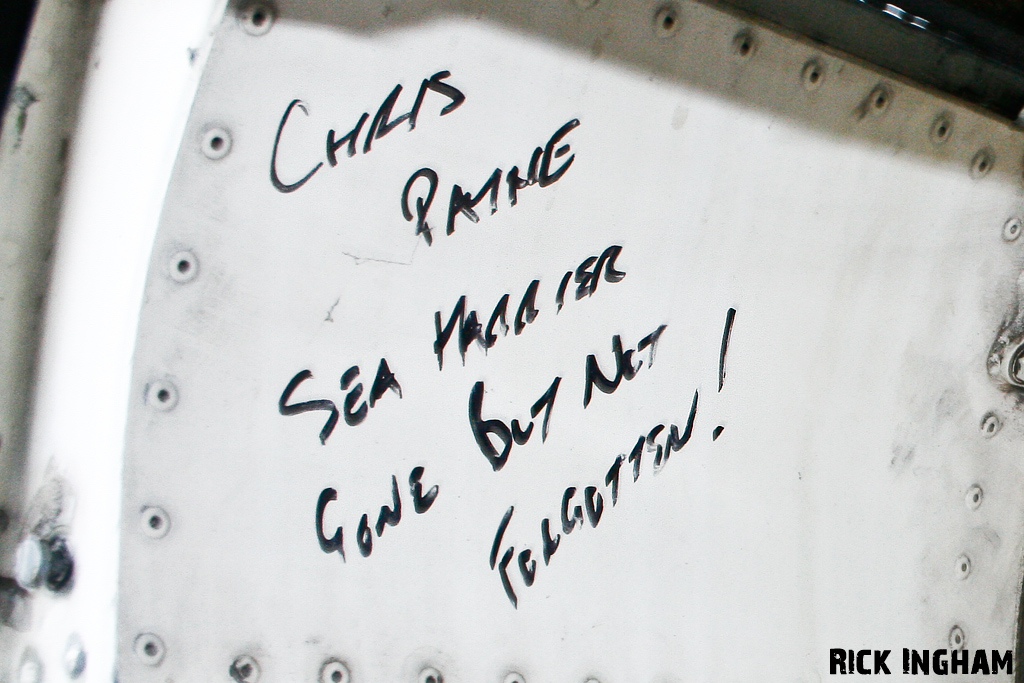 CHRIS
PAYNE
SEA HARRIER
GONE BUT NOT
FORGOTTEN!
RICK INGHAM